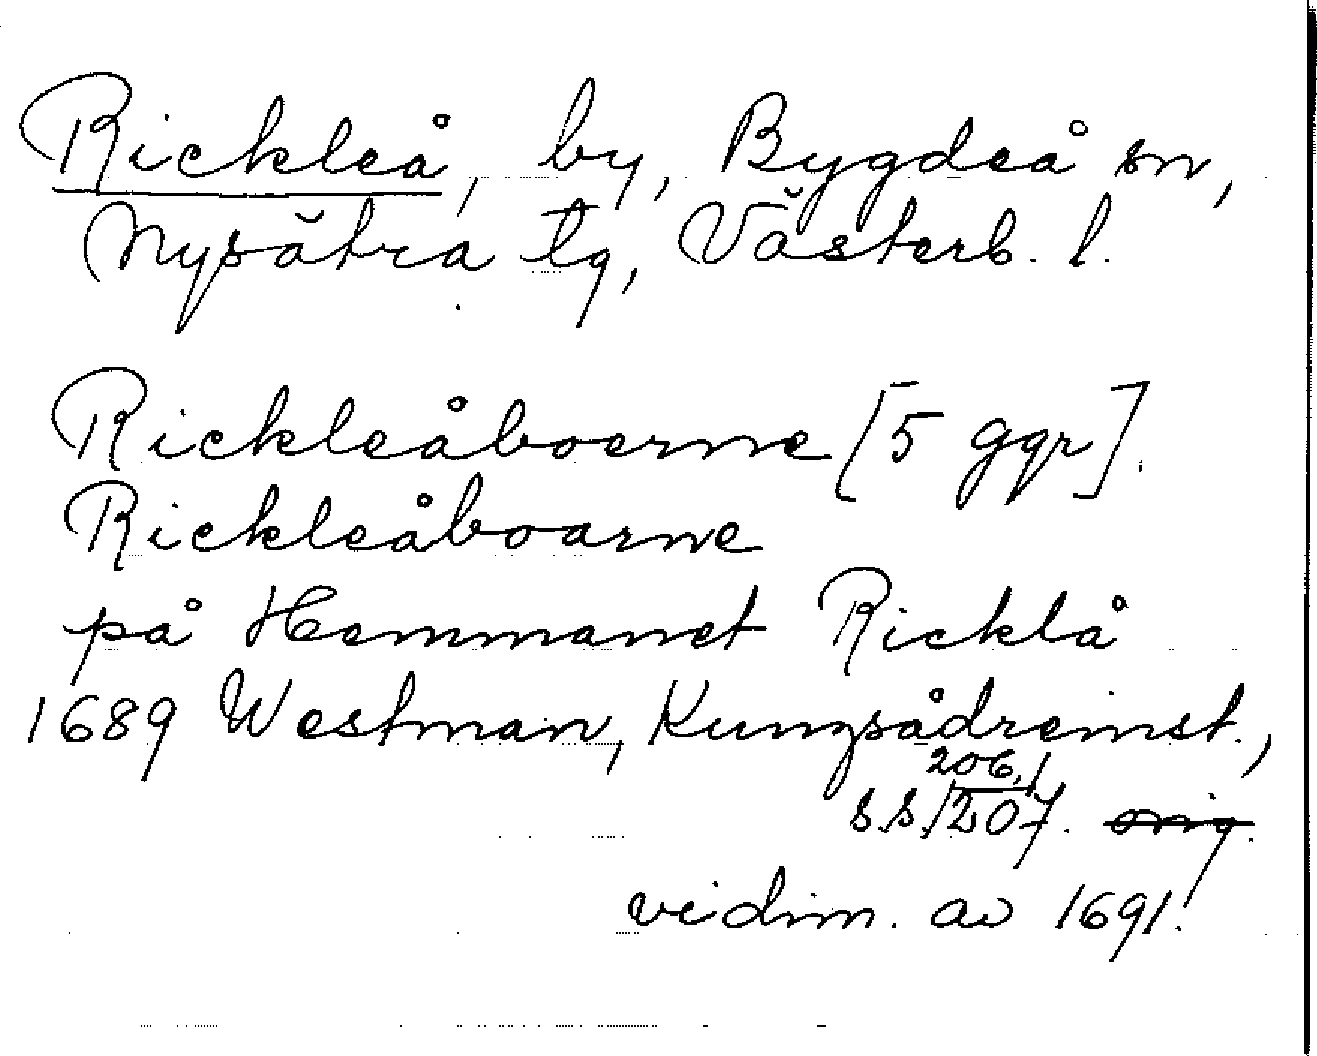 Rickleå, by, Bygdeå sn,
Nysätra tg, Västerb. l.
Rickleåboerne [5 ggr].
Rickleåboarne
på Hemmanet Ricklå
1689 Westman, Kungsådreinst.,
206,
s.s. 207. orig.
vidim. av 1691.